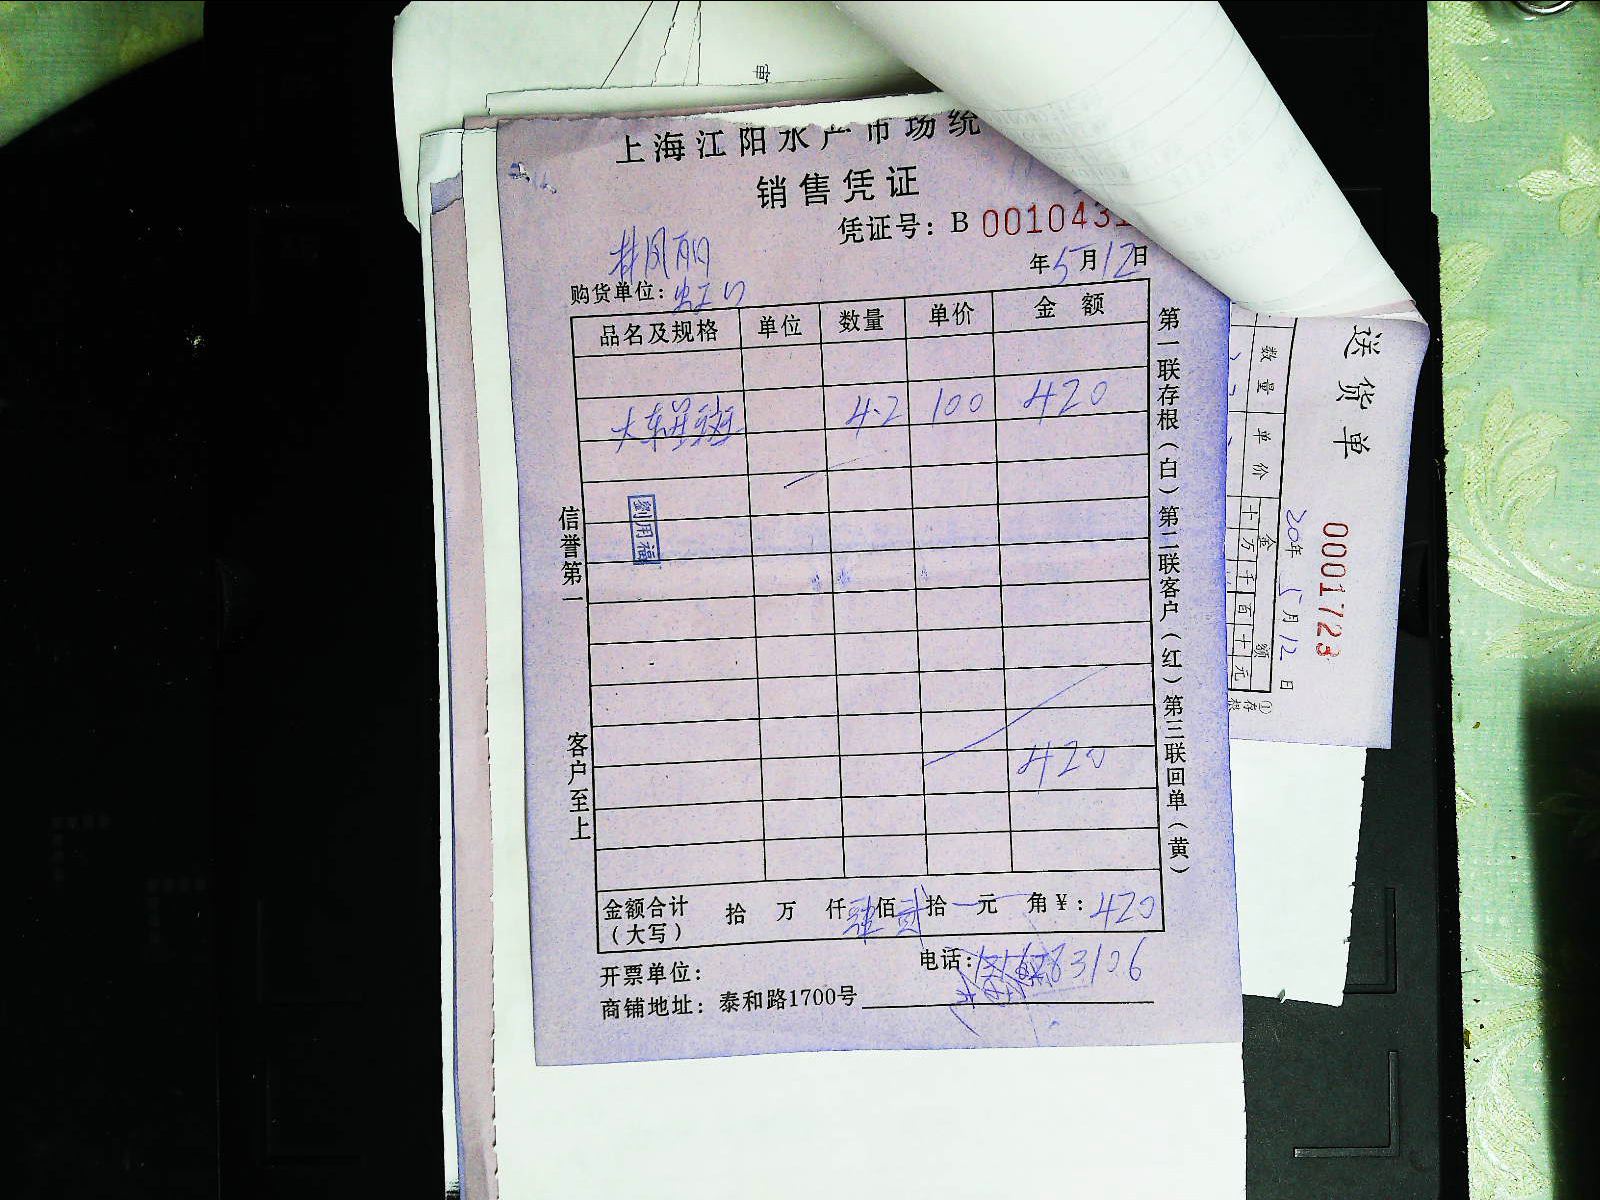 上海江阳水产市场统
销售凭证
凭证号：B 0010431
林凤丽
年5月12日
购货单位：虹口
品名及规格 单位 数量 单价 金 额
大东星斑 4.2 100 420
劉用福
420
金额合计（大写） 拾 万 仟 肆佰 贰拾 元 角￥：420
开票单位：
电话：
商铺地址：泰和路1700号
信誉第一
客户至上
第一联存根（白）第二联客户（红）第三联回单（黄）
送货单
0001723
20年5月12日
数量 单价 金额
十万千百十元
①存根